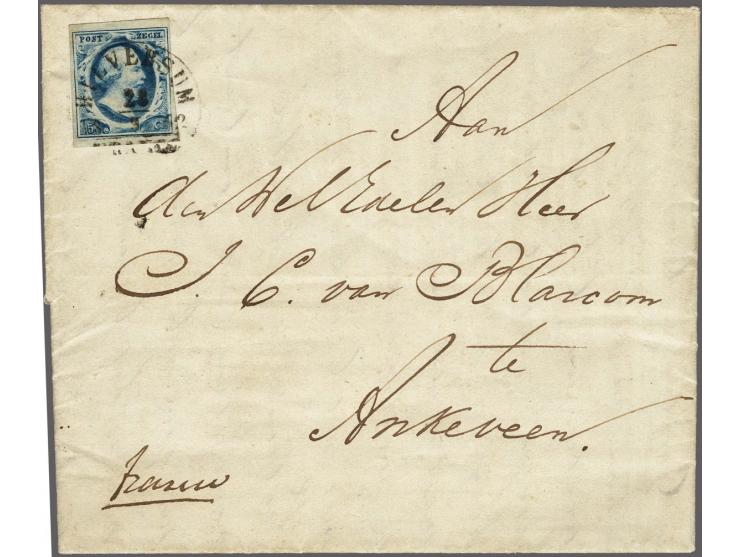 POST ZEGEL
5 C
HILVERSUM
28
FRANCO
Aan
den Wel Edelen Heer
J. C. van Blarcom
te
Ankeveen.
franco